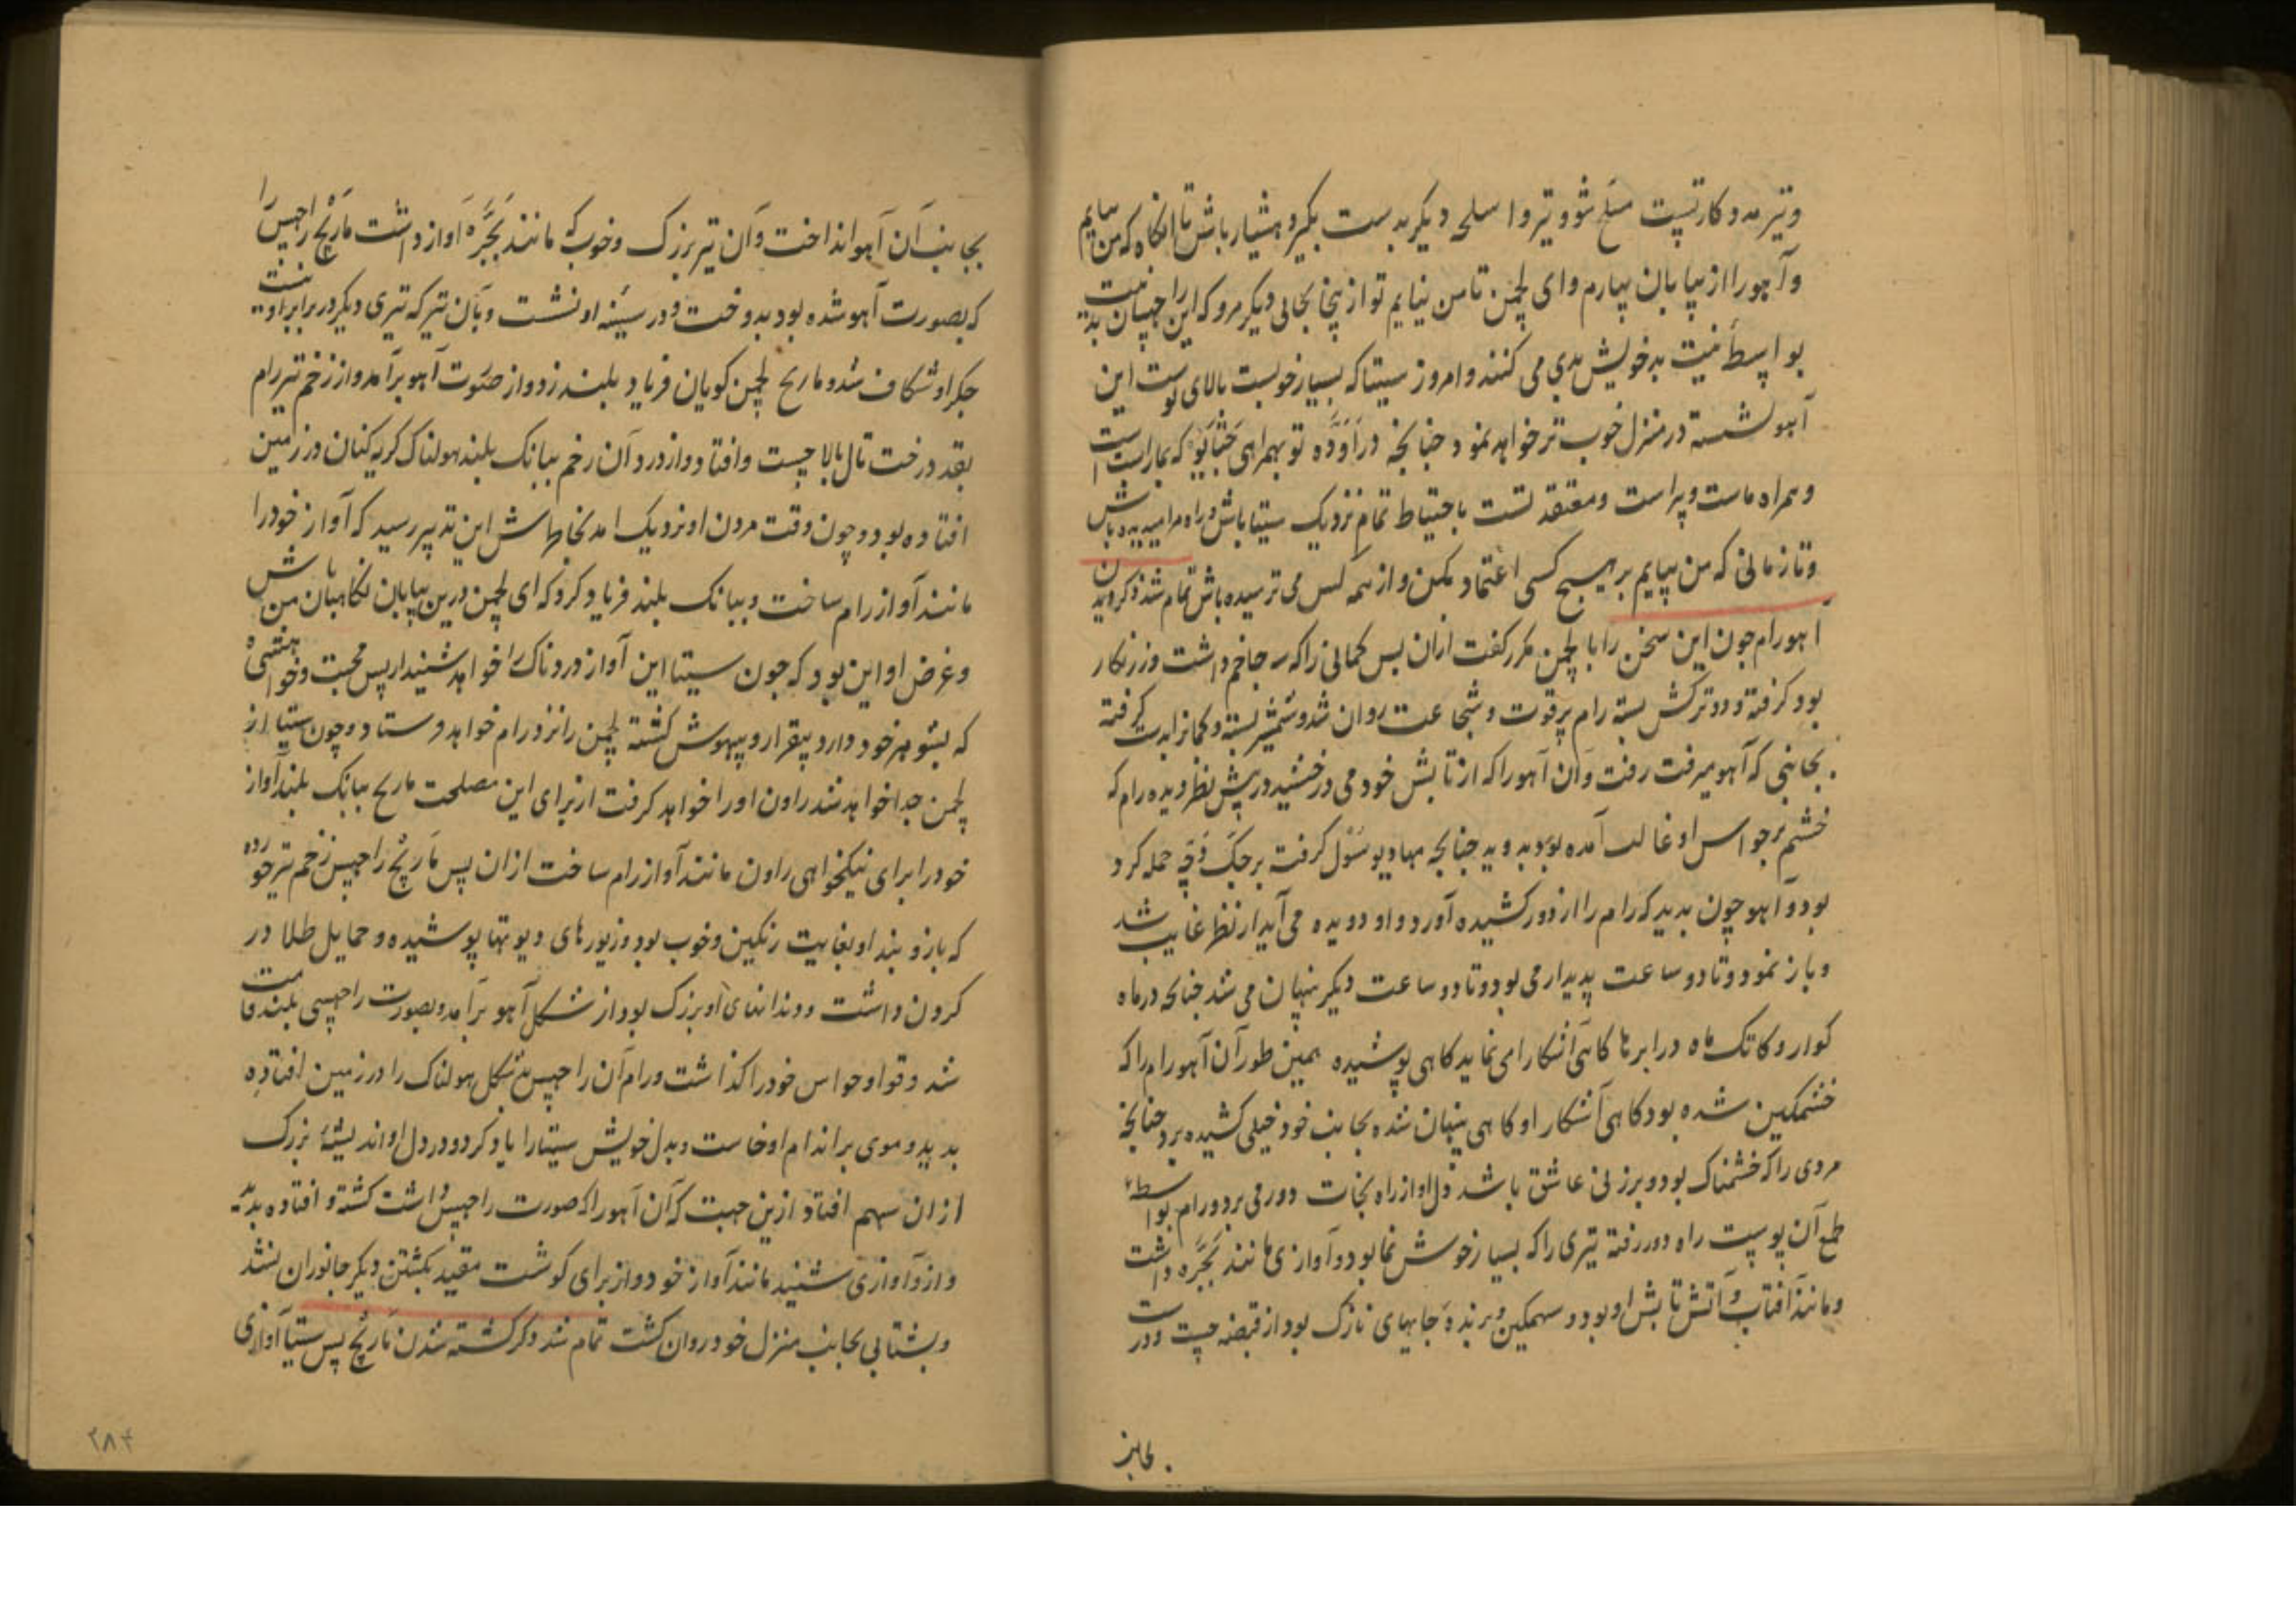 وتیر مدوکار تست مسلح شو و تیر و اسلحه دیکر بدست بکیر و هشیار باش تا انکاه که من بیایم
و آهورا از بیابان بیارم و ای لچمن تا من نیایم تو از ینجا بجای دیکر مرو که این راچهسان بد نیت
بواسطهٔ نیت بد خویش بدی می کنند و امروز سیتا که بسیار خوبست بالای پوست این
آهو نشسته در منزل خوب تر خواهد نمود چنانچه در اوده تو بهمراهی جتایو که یار است
و همراه ماست و پیر است و معتقد تست باحتیاط تمام نزدیک سیتا باش و راه مرا میدیده باش
و تا زمانی که من بیایم بر هیچ کسی اعتماد مکن و از همه کس می ترسیده باش تمام شد ذکر دویدن
آهو رام چون این سخن را با لچمن مکرر کفت ازان پس کمانی را که سه جا خم داشت و زرنکار
بود کرفته و دو ترکش بسته رام پر قوت و شجاعت روان شد و شمشیر بسته و کمانرا بدست کرفته
بجانبی که آهو میرفت رفت و آن آهو را که از تابش خود می درخشید در پیش نظر دیده رام که
خشم بر حواس او غالب آمده بود بدوید چنانچه مهادیو سول کرفته بر جک دچه حمله کرد
بود و آهو چون بدید که رام را از دور کشیده آورد و او دویده می آید از نظر غایب شد
و باز نمود و تا دو ساعت پدیدار می بود و تا دو ساعت دیکر پنهان می شد چنانچه در ماه
کوار و کاتک ماه در ابرها کاهی آشکارا می نماید کاهی پوشیده همین طور آن آهو رام را که
خشمکین شده بود کاهی آشکارا و کاهی پنهان شده بجانب خود خیلی کشیده برد چنانچه
مردی را که خشمناک بود و بر زنی عاشق باشد دل او از راه نجات دور می برد و رام بواسطهٔ
طمع آن پوست راه دور رفته تیری را که بسیار خوش نما بود و آوازی مانند بجره داشت
و مانند آفتاب و آتش تابش او بود و سهمکین و برنده جایهای نازک بود از قبضه جست و در
بجانب
بجانب آن آهو انداخت و آن تیر بزرک و خوب که مانند بجره آواز داشت ماریچ راچهس را
که بصورت آهو شده بود بدوخت و در سینه او نشست و بآن تیر که تیری دیکر در برابر او نیست
جکر او شکاف شد و ماریچ لچمن کویان فریاد بلند زد و از صورت آهو برآمد و از زخم تیر رام
بقد درخت تال بالا جست و افتاد و از درد آن زخم ببانک بلند هولناک کریه کنان در زمین
افتاده بود و چون وقت مردن او نزدیک امد بخاطرش این تدبیر رسید که آواز خود را
مانند آواز رام ساخت و ببانک بلند فریاد کرد که ای لچمن درین بیابان نکاهبان من باش
و غرض او این بود که چون سیتا این آواز دردناک را خواهد شنید از بس محبت و خواهشی
که بشوهر خود دارد بیقرار و بیهوش کشته لچمن را نزد رام خواهد فرستاد و چون سیتا از
لچمن جدا خواهد شد راون اورا خواهد کرفت از برای این مصلحت ماریچ ببانک بلند آواز
خود را برای نیکخواهی راون مانند آواز رام ساخت ازان پس ماریچ راچهس زخم تیر خورده
که بازوبند او بغایت رنکین و خوب بود و زیورهای دیوتها پوشیده و حمایل طلا در
کردن داشت و دندانهای او بزرک بود از شکل آهو برآمد و بصورت راچهسی بلند قامت
شد و قوا و حواس خود را کذاشت و رام آن راچهس بشکل هولناک را در زمین افتاده
بدید و موی بر اندام او خاست و بدل خویش سیتا را یاد کرد و در دل او اندیشهٔ بزرک
ازان سهم افتاد ازین جهت که آن آهو را که صورت راچهس داشت کشته و افتاده بدید
و ازو آوازی شنید مانند آواز خود و از برای کوشت مقید بکشتن دیکر جانوران نشد
و بشتابی بجانب منزل خود روان کشت تمام شد ذکر کشته شدن ماریچ پس سیتا آوازی
۲۸۴